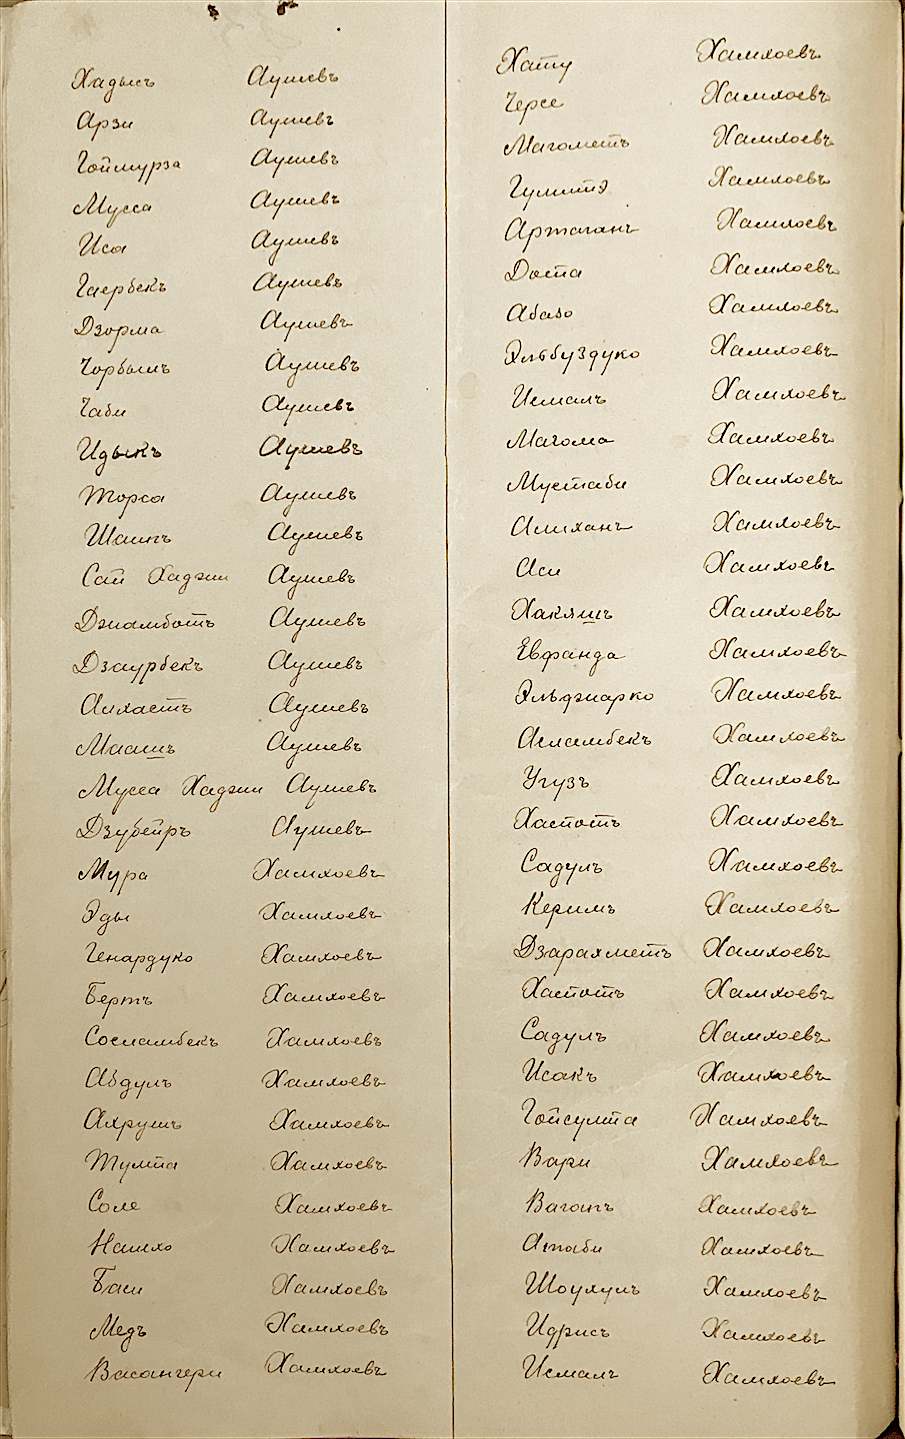 Хадысъ Аушевъ
Арзи Аушевъ
Гоймурза Аушевъ
Мусса Аушевъ
Иса Аушевъ
Гаербекъ Аушевъ
Дзорма Аушевъ
Чорбышъ Аушевъ
Чаби Аушевъ
Идыкъ Аушевъ
Торса Аушевъ
Шаипъ Аушевъ
Сай Хаджи Аушевъ
Джамботъ Аушевъ
Дзаурбекъ Аушевъ
Алхастъ Аушевъ
Мaашъ Аушевъ
Мусса Хаджи Аушевъ
Дзубейръ Аушевъ
Мура Хамхоевъ
Эды Хамхоевъ
Генардуко Хамхоевъ
Бертъ Хамхоевъ
Сосламбекъ Хамхоевъ
Абдулъ Хамхоевъ
Ахрушъ Хамхоевъ
Тумта Хамхоевъ
Соле Хамхоевъ
Нашхо Хамхоевъ
Баси Хамхоевъ
Медъ Хамхоевъ
Васангери Хамхоевъ
Хату Хамхоевъ
Черсе Хамхоевъ
Магометъ Хамхоевъ
Хамхоевъ
Артаганъ Хамхоевъ
Доста Хамхоевъ
Абазо Хамхоевъ
Эльбуздуко Хамхоевъ
Исмалъ Хамхоевъ
Магома Хамхоевъ
Мустаби Хамхоевъ
Алиханъ Хамхоевъ
Аси Хамхоевъ
Хакяшъ Хамхоевъ
Евфанда Хамхоевъ
Эльджарко Хамхоевъ
Асламбекъ Хамхоевъ
Угузъ Хамхоевъ
Хаспотъ Хамхоевъ
Садулъ Хамхоевъ
Керимъ Хамхоевъ
Дзарахметъ Хамхоевъ
Хаспотъ Хамхоевъ
Садулъ Хамхоевъ
Исакъ Хамхоевъ
Гойсулта Хамхоевъ
Вари Хамхоевъ
Вагапъ Хамхоевъ
Атаби Хамхоевъ
Шоухулъ Хамхоевъ
Идрисъ Хамхоевъ
Исмалъ Хамхоевъ